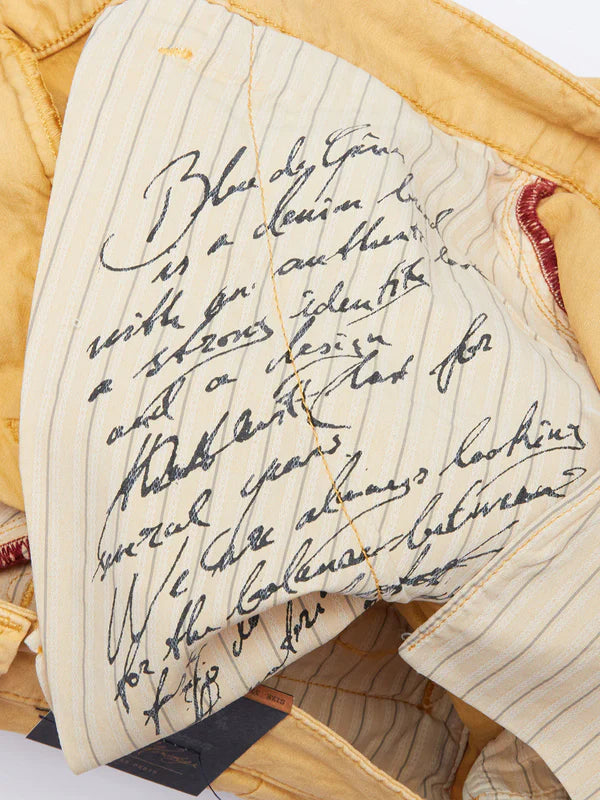 Blue de Gênes
is a denim brand
with an authentic
a strong identity
and a design
that will last for
several years.
We are always looking
for the balance between